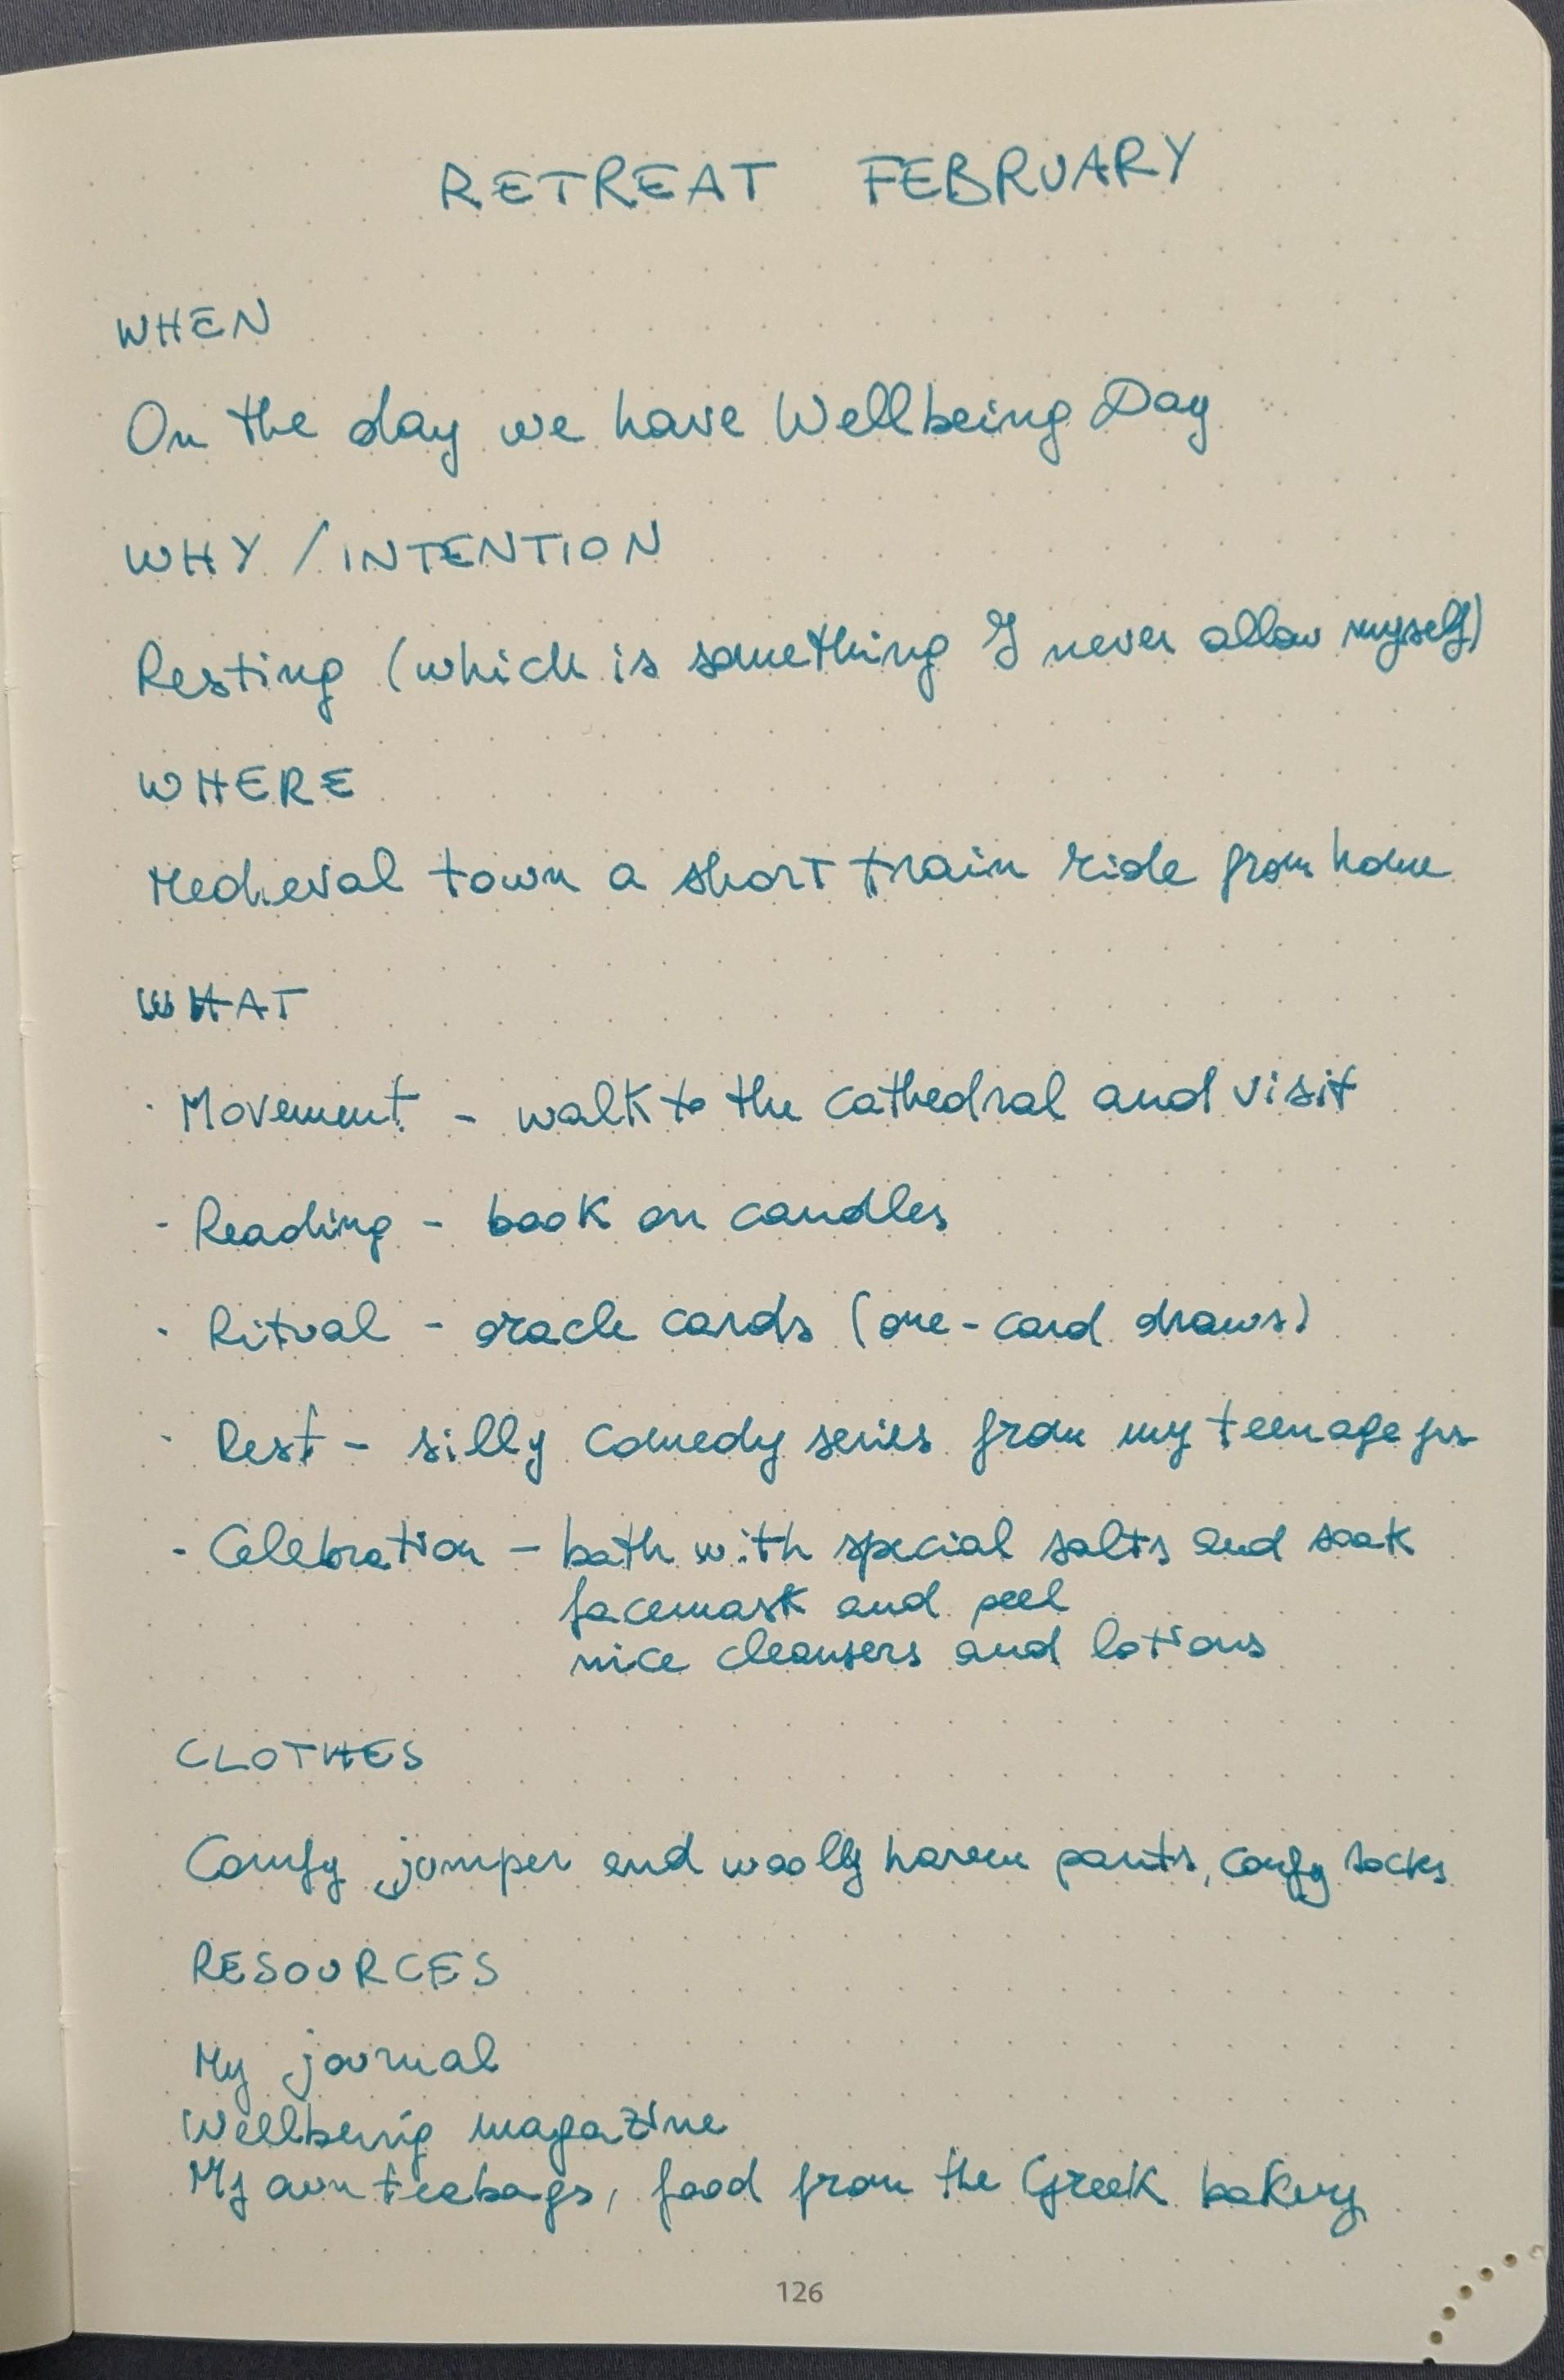 RETREAT FEBRUARY
WHEN
On the day we have Wellbeing Day
WHY / INTENTION
Resting (which is something I never allow myself)
WHERE
Medieval town a short train ride from home
WHAT
· Movement - walk to the cathedral and visit
- Reading - book on candles
· Ritual - oracle cards (one-card draws)
· Rest - silly comedy series from my teenage yrs
- Celebration - bath with special salts and soak
facemask and peel
nice cleansers and lotions
CLOTHES
Comfy jumper and woolly harem pants, comfy socks
RESOURCES
My journal
Wellbeing magazine
My own teabags, food from the Greek bakery
126